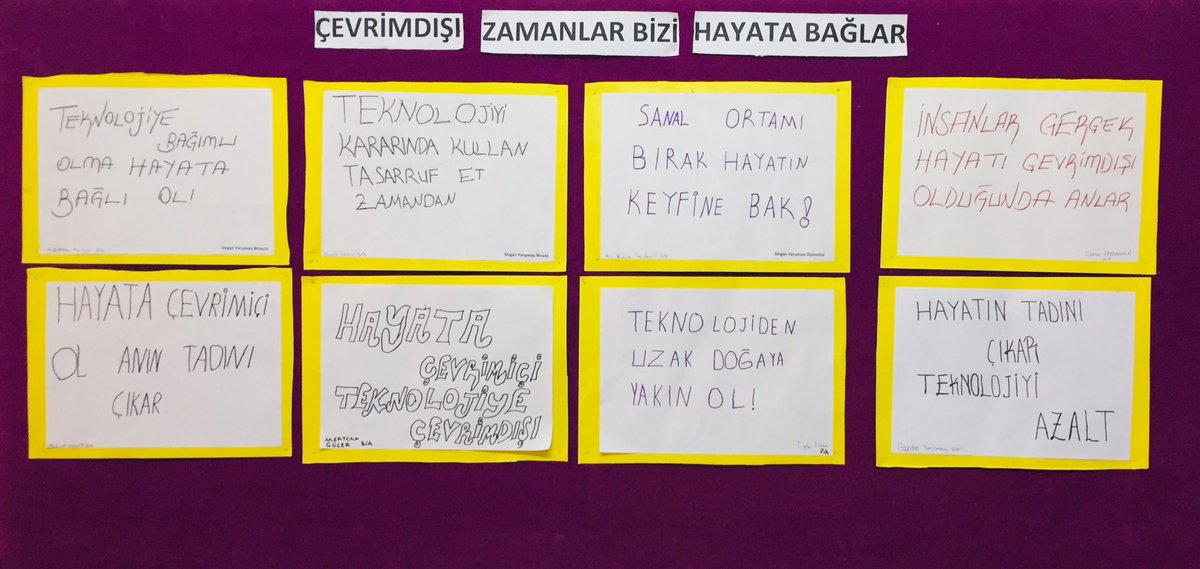 ÇEVRİMDIŞI ZAMANLAR BİZİ HAYATA BAĞLAR
TEKNOLOJİYE
BAĞIMLI
OLMA HAYATA
BAĞLI OL!
Slogan Yarışması Birincisi
TEKNOLOJİYİ
KARARINDA KULLAN
TASARRUF ET
ZAMANDAN
Slogan Yarışması İkincisi
SANAL ORTAMI
BIRAK HAYATIN
KEYFİNE BAK!
Slogan Yarışması Üçüncüsü
İNSANLAR GERÇEK
HAYATI ÇEVRİMDIŞI
OLDUĞUNDA ANLAR
HAYATA ÇEVRİMİÇİ
OL ANIN TADINI
ÇIKAR
HAYATA
ÇEVRİMİÇİ
TEKNOLOJİYE
ÇEVRİMDIŞI
MERTCAN
GÜLER 8/A
TEKNOLOJİDEN
UZAK DOĞAYA
YAKIN OL!
7/A
HAYATIN TADINI
ÇIKAR
TEKNOLOJİYİ
AZALT